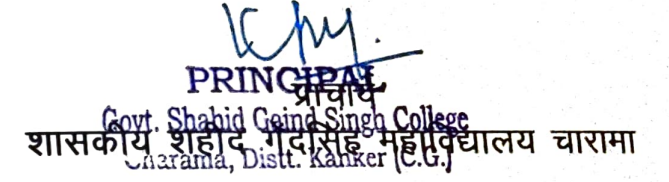 PRINCIPAL
प्राचार्य
Govt. Shahid Gaind Singh College
शासकीय शहीद गेंदसिंह महाविद्यालय चारामा
Charama, Distt. Kanker (C.G.)